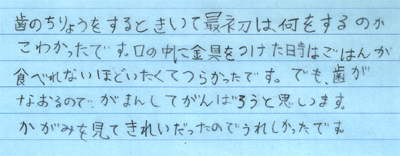 歯のちりょうをするときいて最初は何をするのか
こわかったです。口の中に金具をつけた時はごはんが
食べれないほどいたくてつらかったです。でも、歯が
なおるので、がまんしてがんばろうと思います。
かがみを見てきれいだったのでうれしかったです。